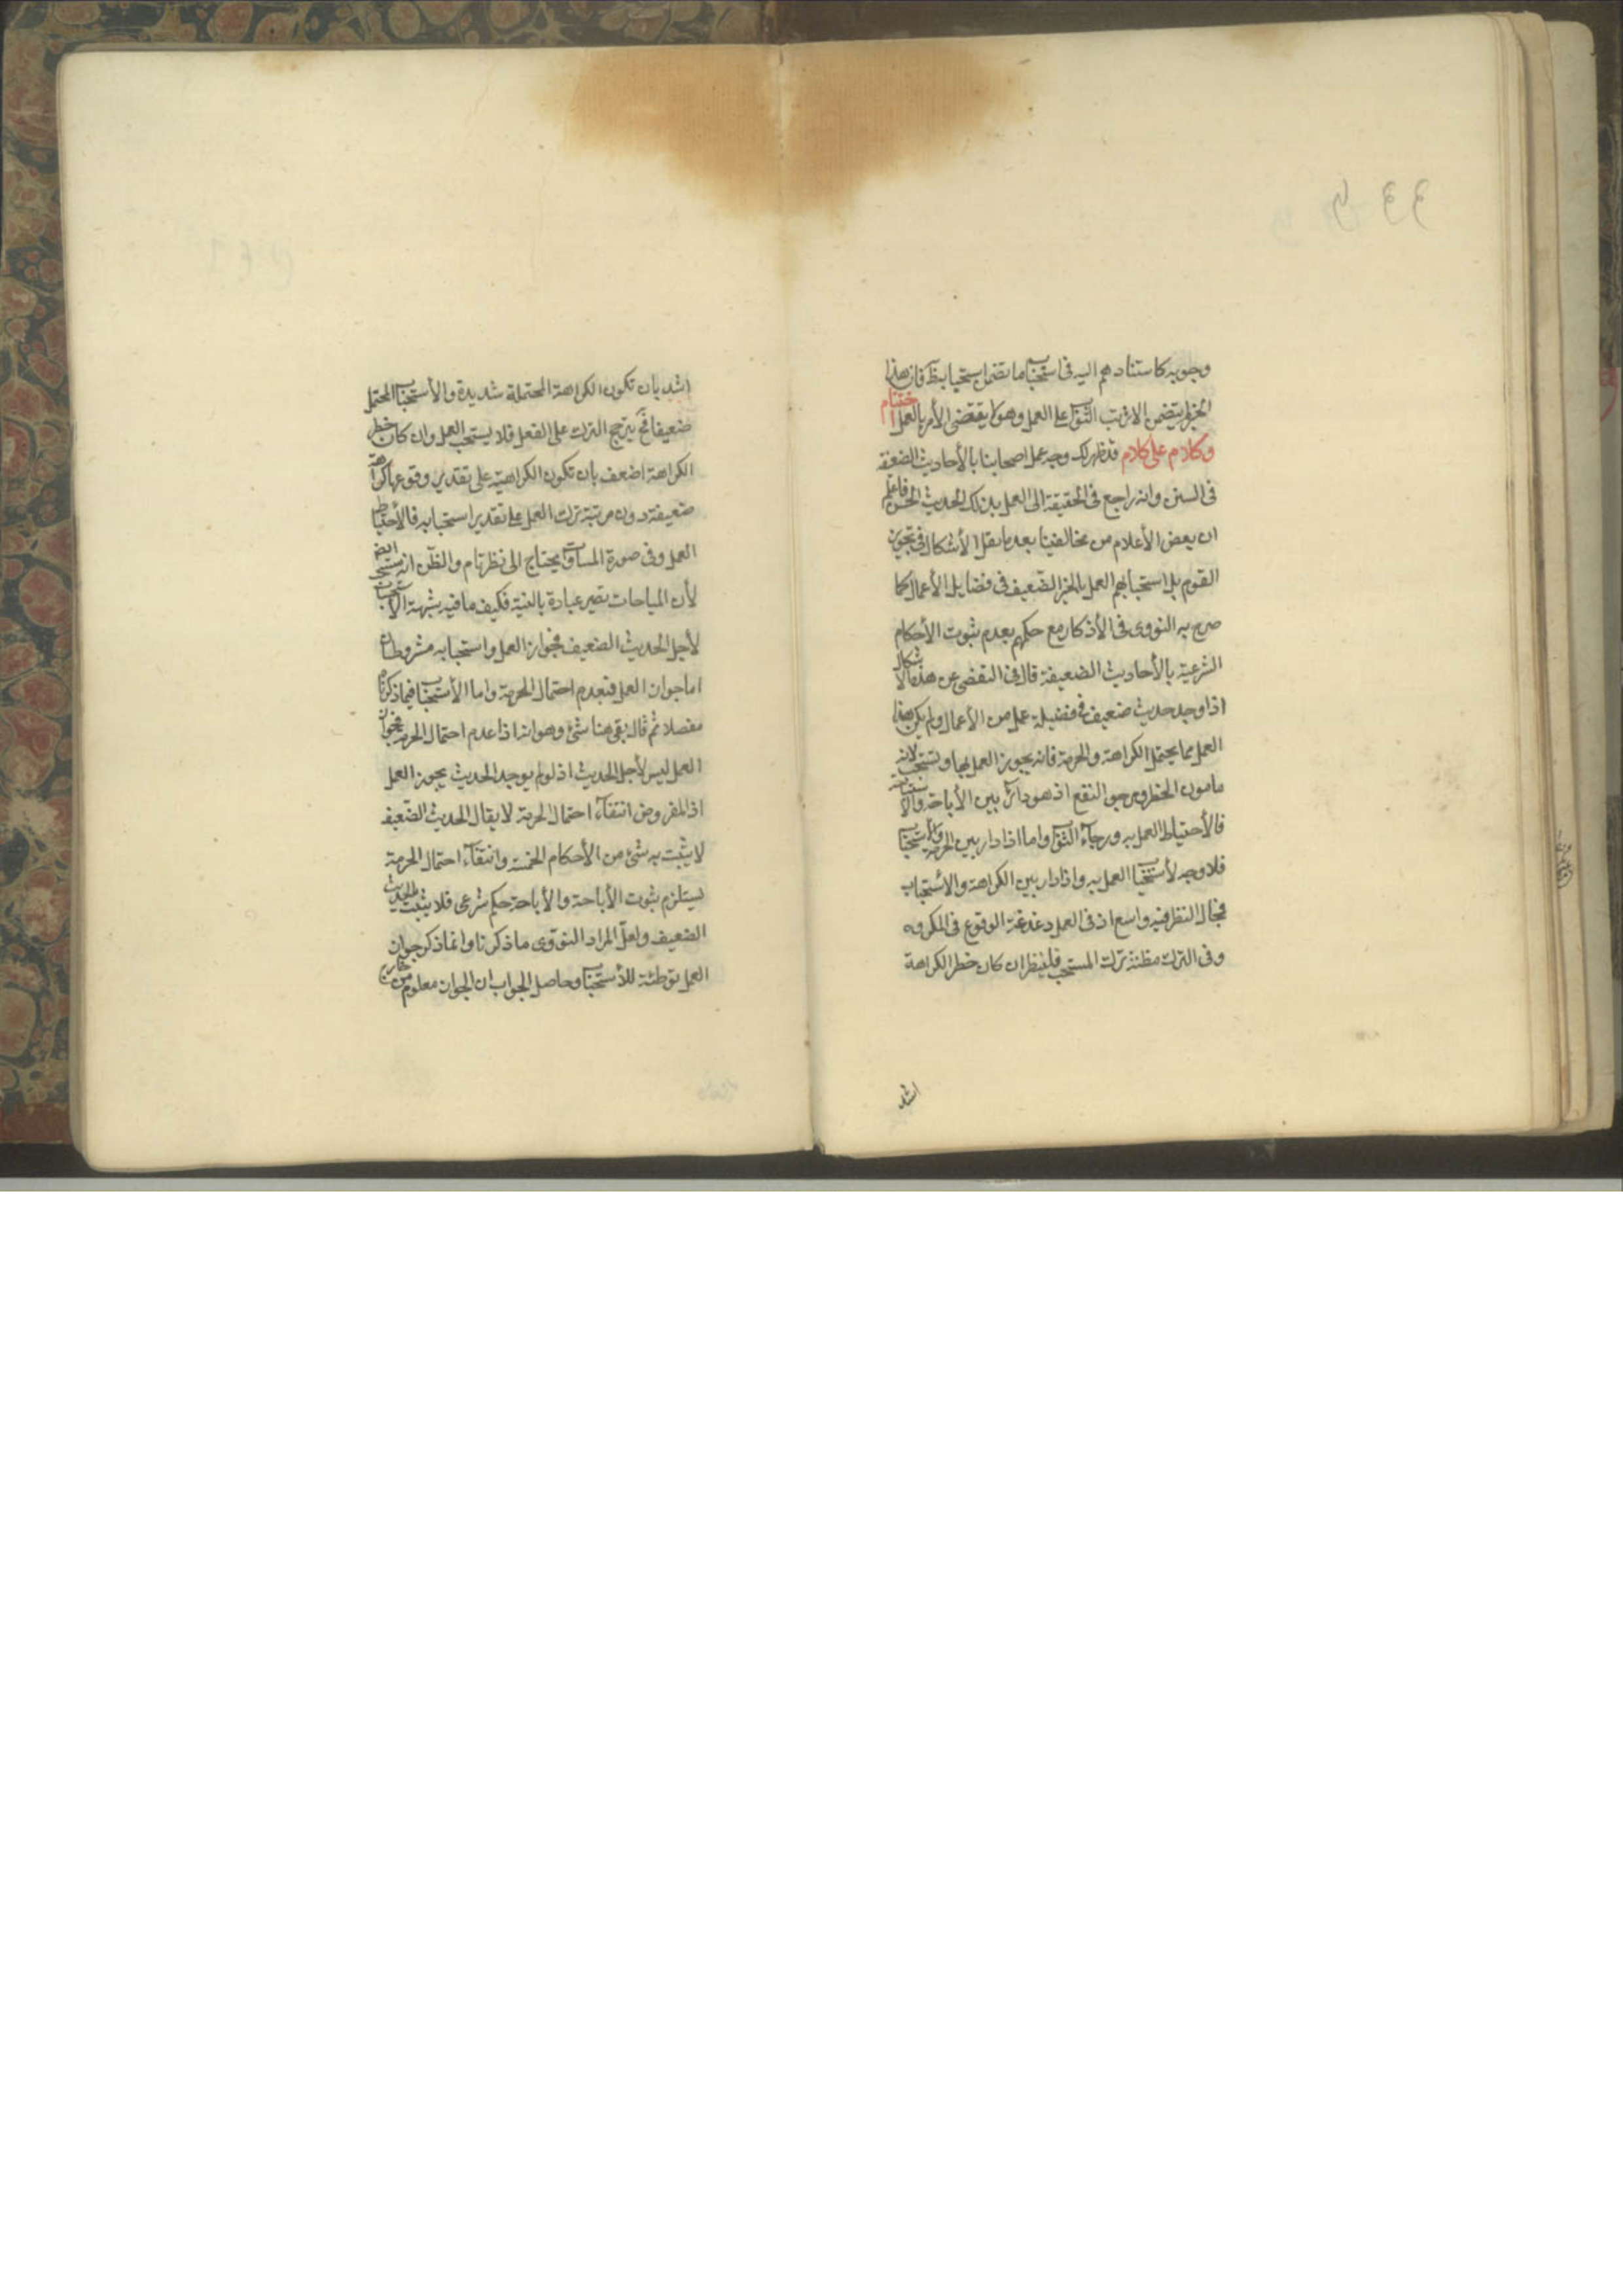 وجوبه كاستنادهم اليه فى استحباب ما تضمن استحبابه فان هذا
الخبر لم يتضمن الا ترتب الثواب على العمل وهو لا يقتضى الأمر بالعمل اختتام
وكلام على كلام قد ظهر لك وجه عمل اصحابنا بالأحاديث الضعيفة
فى السنن وانه راجع فى الحقيقة الى العمل بذلك الحديث الحسن فاعلم
ان بعض الأعلام من مخالفينا بعد ما نقل الأشكال فى تجويز
القوم بل استحبابهم العمل بالخبر الضعيف فى فضايل الأعمال كما
صرح به النووى فى الأذكار مع حكمهم بعدم ثبوت الأحكام
الشرعية بالأحاديث الضعيفة قال فى التفصى عن هذا الاشكال
اذا وجد حديث ضعيف فى فضيلة عمل من الأعمال ولم يكن هذا
العمل مما يحتمل الكراهة والحرمة فانه يجوز العمل بها ويستحب لانه
مامون الخطر ومرجو النفع اذ هو دائر بين الأباحة والا
فالأحتياط العمل به ورجاء الثواب واما اذا دار بين الحرمة والأستحباب
فلا وجه لأستحباب العمل به واذا دار بين الكراهة والاستحباب
فمجال النظر فيه واسع اذ فى العمل دغدغة الوقوع فى المكروه
وفى الترك مظنة ترك المستحب فلينظر ان كان خطر الكراهة
اشد
اشد بان تكون الكراهة المحتملة شديدة والأستحباب المحتمل
ضعيفا فح يترجح الترك على الفعل فلا يستحب العمل وان كان خطر
الكراهة اضعف بان تكون الكراهية على تقدير وقوعها كراهة
ضعيفة دون مرتبة ترك العمل على تقدير استحبابه فالأحتياط
العمل وفى صورة المساواة يحتاج الى نظر تام والظن انه مستحب ايضم
لأن المباحات تصير عبادة بالنية فكيف ما فيه شبهة الاستحباب
لأجل الحديث الضعيف فجواز العمل واستحبابه مشروطان
اما جواز العمل فبعدم احتمال الحرمة واما الأستحباب فبما ذكرناه
مفصلا ثم قال بقى هنا شئ وهو انه اذا عدم احتمال الحرمة فجواز
العمل ليس لأجل الحديث اذ لو لم يوجد الحديث يجوز العمل
اذ المفروض انتفاء احتمال الحرمة لا يقال الحديث الضعيف
لا يثبت به شئ من الأحكام الخمسة وانتفاء احتمال الحرمة
يستلزم ثبوت الأباحة والأباحة حكم شرعى فلا يثبت بالحديث
الضعيف ولعل المراد النووى ما ذكرنا وانما ذكر جواز
العمل توطئة للأستحباب وحاصل الجواب ان الجواز معلوم من خارج